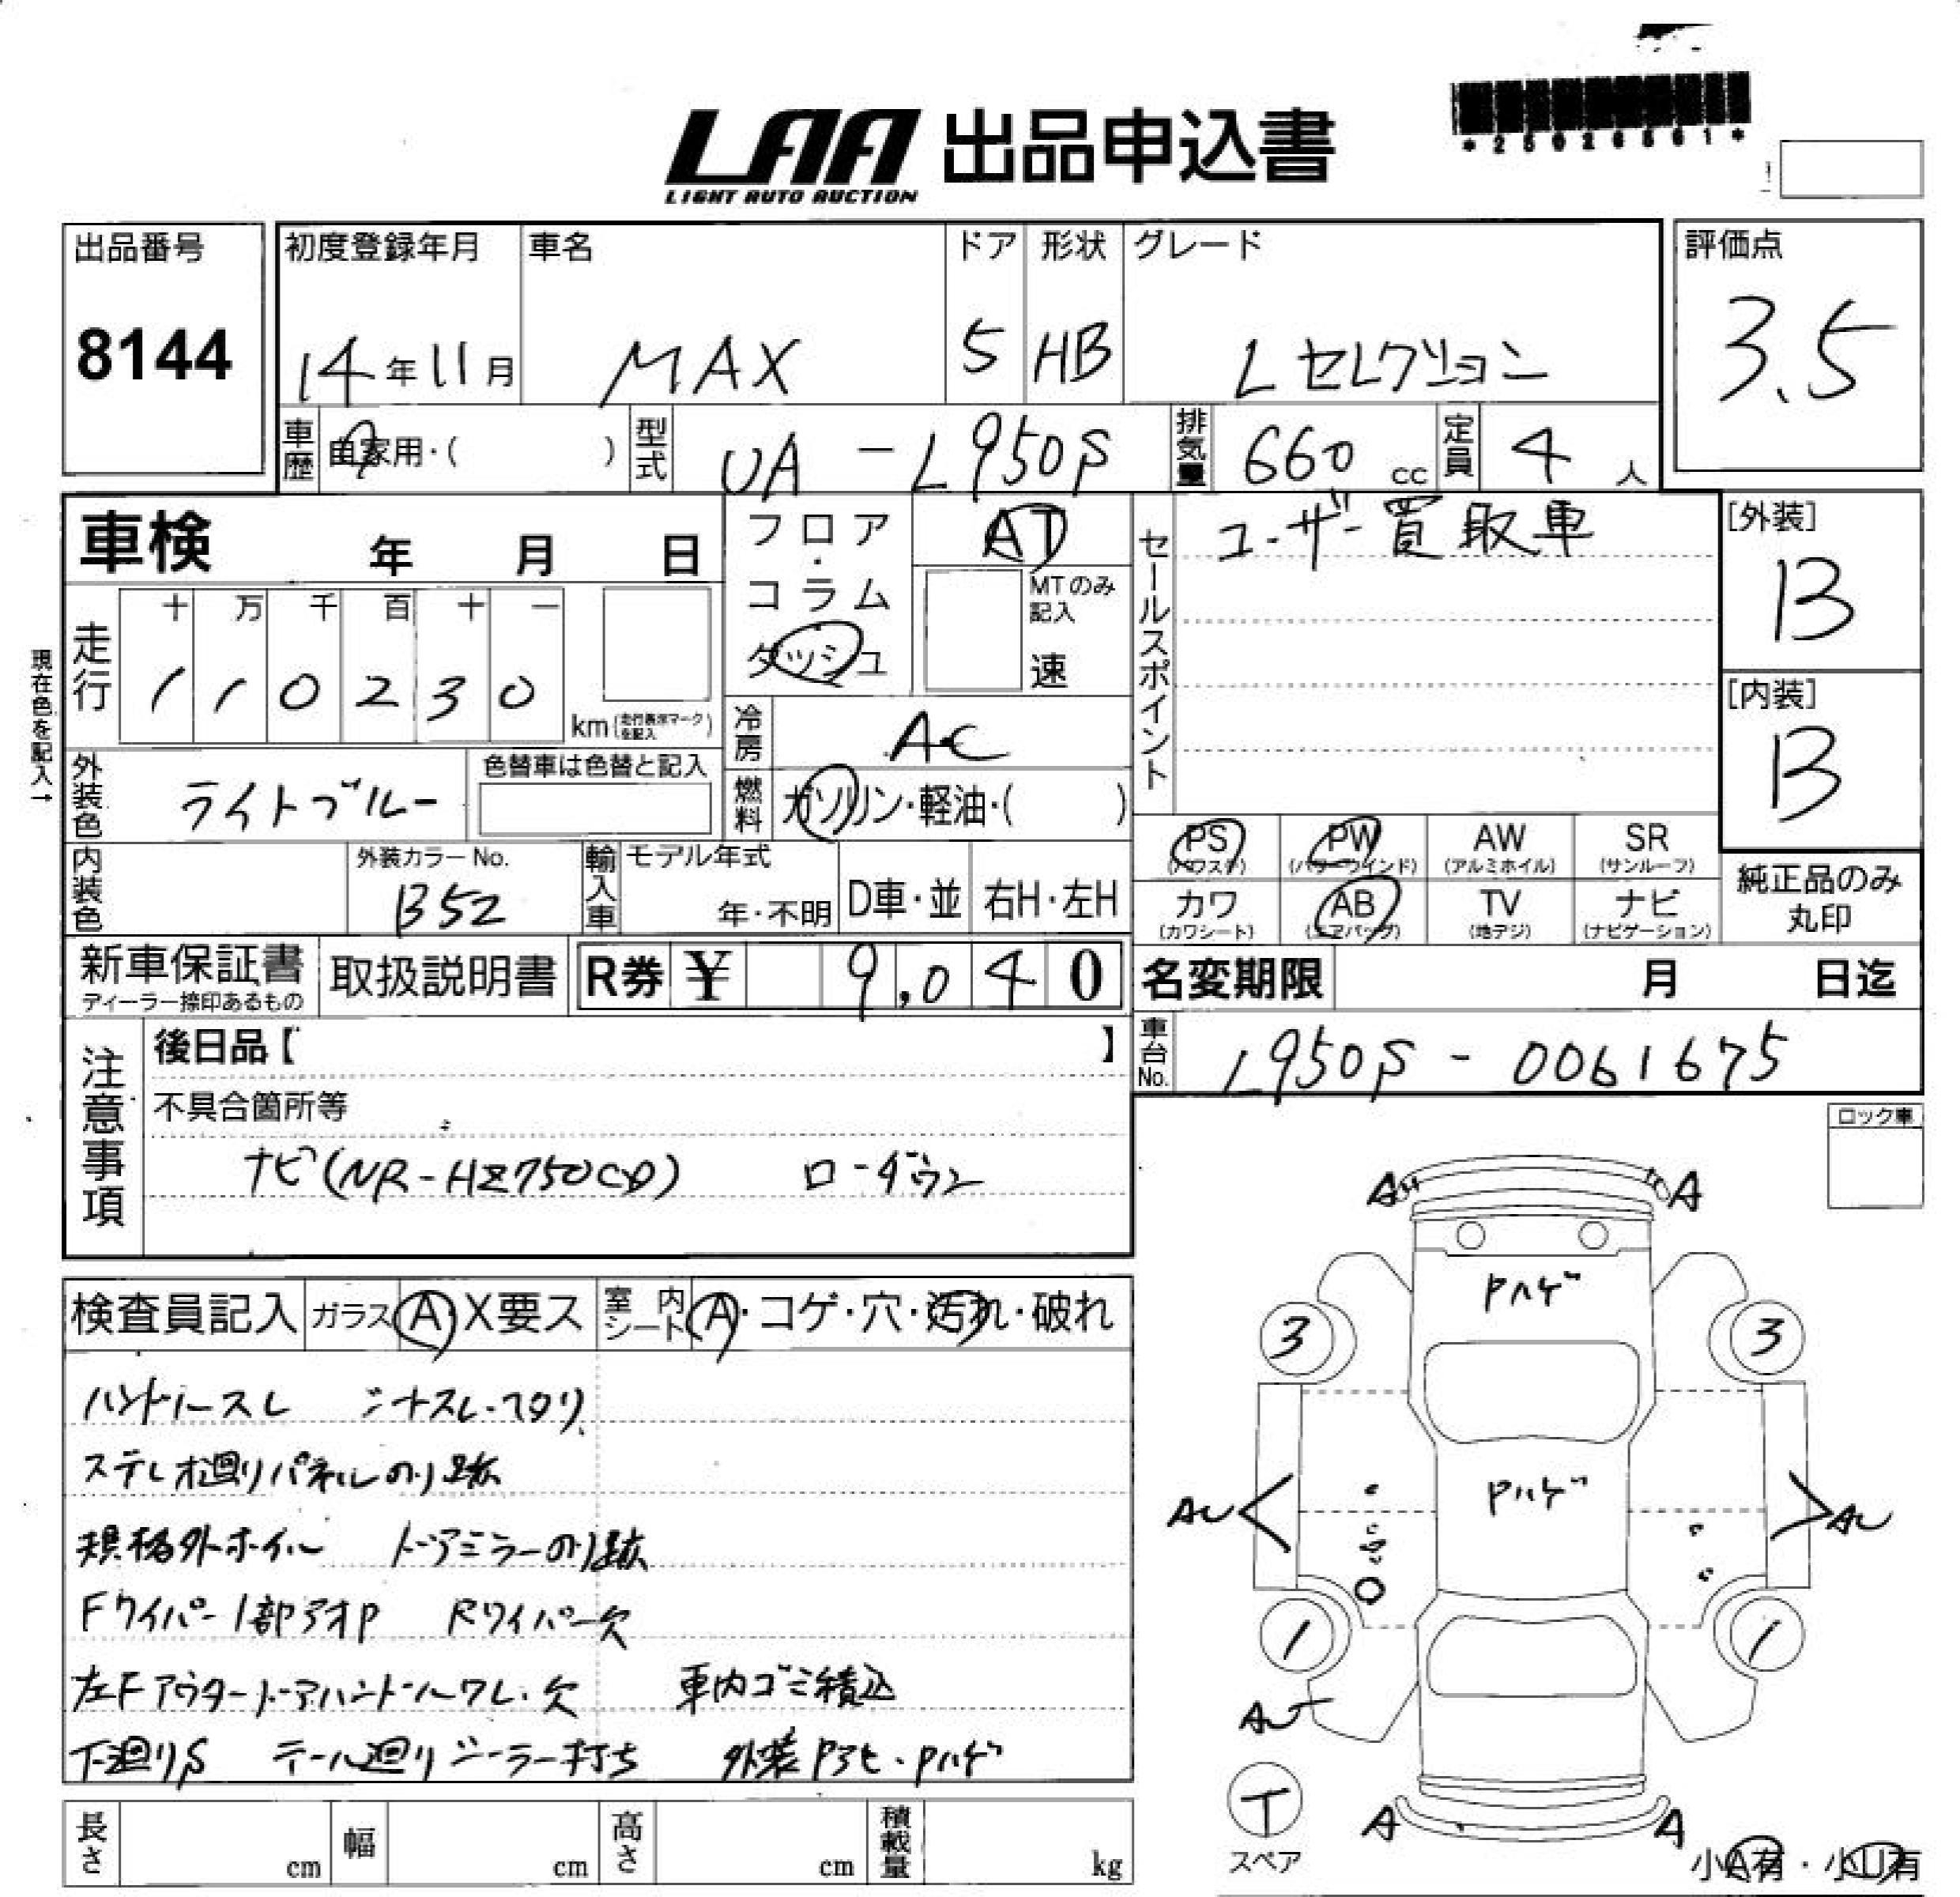 LAA 出品申込書
LIGHT AUTO AUCTION
*25026561*
出品番号 初度登録年月 車名 ドア 形状 グレード 評価点
8144 14年11月 MAX 5 HB Lセレクション 3.5
車歴 自家用・( ) 型式 UA-L950S 排気量 660 cc 定員 4 人
車検 年 月 日
フロア・コラム ダッシュ AT
MTのみ記入 速
セールスポイント ユーザー買取車
[外装] B
現在色を記入→
走行 十 万 千 百 十 一
1 1 0 2 3 0 km (走行表示マークを記入)
[内装] B
冷房 AC
外装色 ライトブルー 色替車は色替と記入
燃料 ガソリン・軽油・( )
PS (パワステ) PW (パワーウインド) AW (アルミホイル) SR (サンルーフ)
内装色 外装カラーNo. B52 輸入車 モデル年式 年・不明 D車・並 右H・左H
カワ (カワシート) AB (エアバッグ) TV (地デジ) ナビ (ナビゲーション)
純正品のみ丸印
新車保証書 ディーラー捺印あるもの 取扱説明書 R券 ¥ 9,040
名変期限 月 日迄
車台No. L950S-0061675
注意事項
後日品【 】
不具合箇所等
ナビ(NR-HZ750CD) ローダウン
ロック車
検査員記入 ガラス A X要ス 室内シート A・コゲ・穴・汚れ・破れ
ハンドルスレ
ステレオ廻りパネルのり跡
規格外ホイル ドアミラーのり跡
Fワイパー1部アオP Rワイパー欠
左Fアウタードアハンドルワレ・欠 車内ゴミ積込
下廻りS テール廻りシーラー打ち
A A
Pハゲ
3 3
Pハゲ
AU AU
1 1
AU
T
スペア
A A
小A有・小U有
長さ cm 幅 cm 高さ cm 積載量 kg